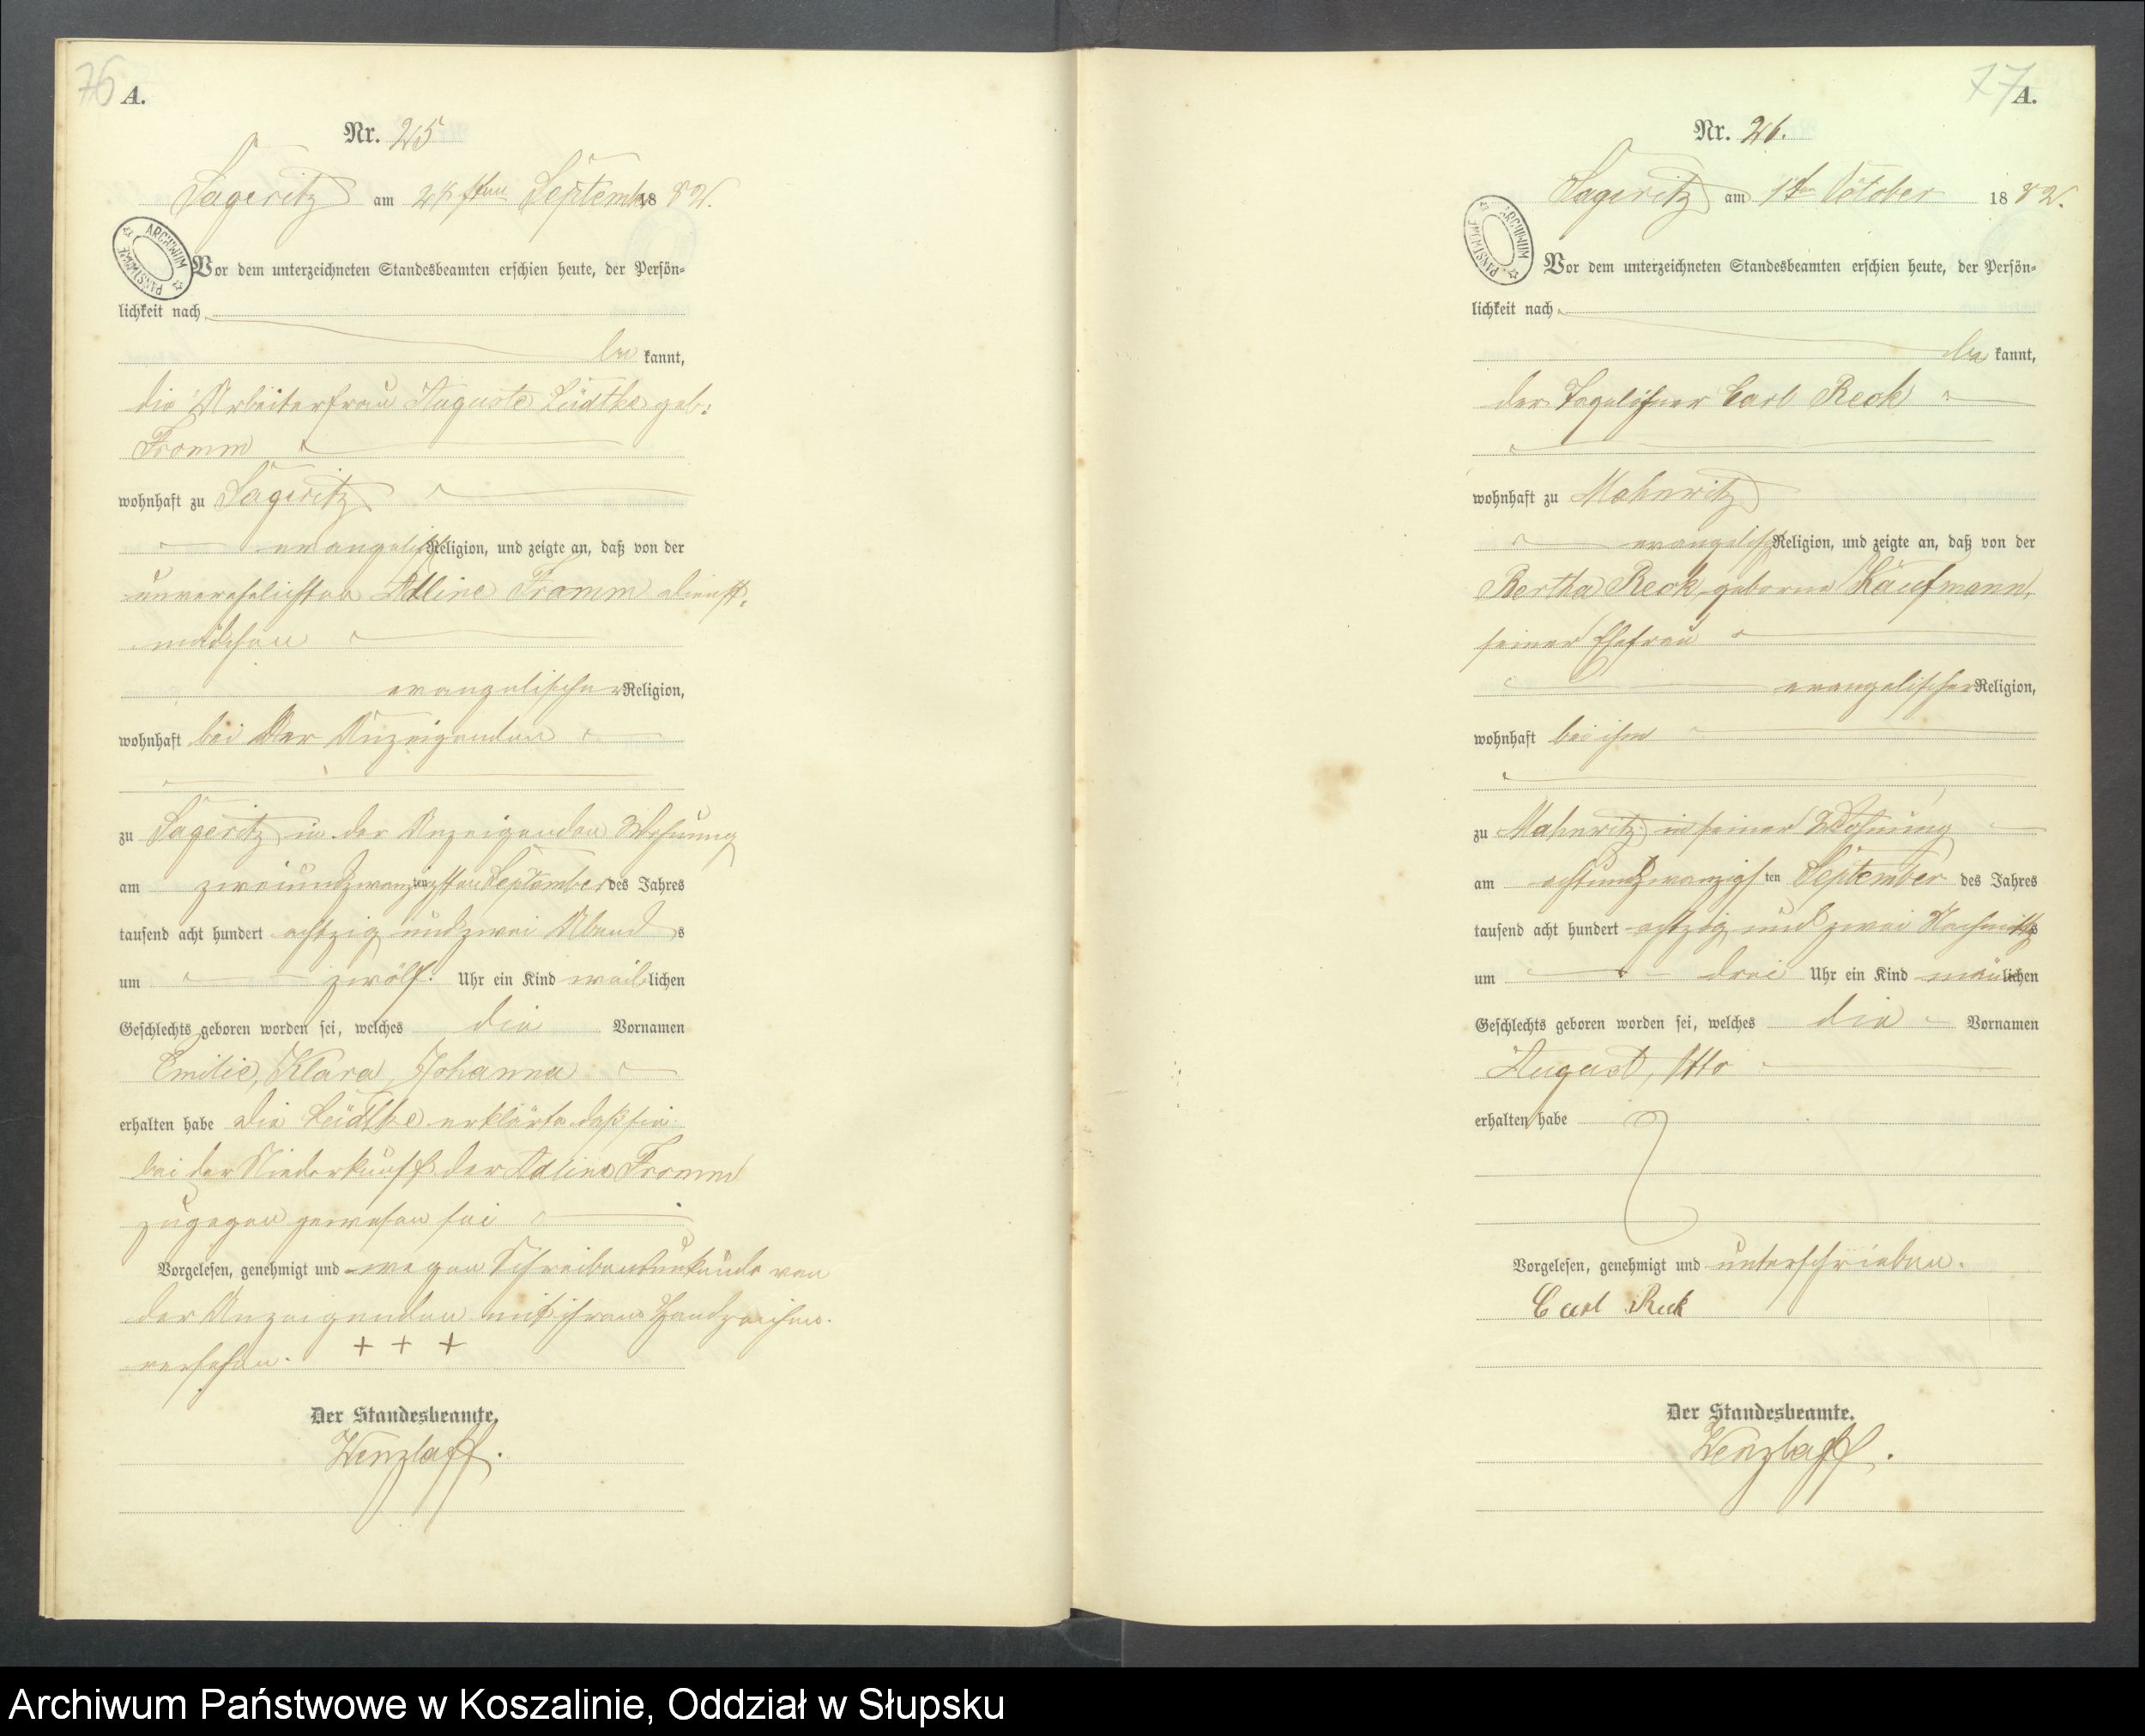 76
A.
Nr. 25
Sageritz am ten September 1882.
ARCHIWUM PAŃSTWOWE
Vor dem unterzeichneten Standesbeamten erschien heute, der Persön-
lichkeit nach
be kannt,
die Arbeiterfrau Auguste Lüdtke geb:
Fromm
wohnhaft zu Sageritz
evangelisch Religion, und zeigte an, daß von der
unverehelichten Adline Fromm Dienst-
mädchen
evangelischer Religion,
wohnhaft bei der Anzeigenden
zu Sageritz in der Anzeigenden Wohnung
am zweiundzwanzigsten ten September des Jahres
tausend acht hundert achtzig und zwei Abend s
um zwölf Uhr ein Kind weiblichen
Geschlechts geboren worden sei, welches die Vornamen
Emilie, Klara, Johanna
erhalten habe die Lüdtke erklärte daß sie
bei der Niederkunft der Adline Fromm
zugegen gewesen sei
Vorgelesen, genehmigt und wegen Schreibensunkunde von
der Anzeigenden mit ihrem Handzeichen
versehen. + + +
Der Standesbeamte.
Wenzlaff.
77
A.
Nr. 26.
Sageritz am 1ten October 1882.
ARCHIWUM PAŃSTWOWE
Vor dem unterzeichneten Standesbeamten erschien heute, der Persön-
lichkeit nach
be kannt,
der Tagelöhner Carl Reck
wohnhaft zu Mahnwitz
evangelisch Religion, und zeigte an, daß von der
Bertha Reck geborne Kaufmann,
seiner Ehefrau
evangelischer Religion,
wohnhaft bei ihm
zu Mahnwitz in seiner Wohnung
am achtundzwanzigsten September des Jahres
tausend acht hundert achtzig und zwei Nachmittags
um drei Uhr ein Kind männlichen
Geschlechts geboren worden sei, welches die Vornamen
August, Otto
erhalten habe
Vorgelesen, genehmigt und unterschrieben.
Carl Reck
Der Standesbeamte.
Wenzlaff.
Archiwum Państwowe w Koszalinie, Oddział w Słupsku